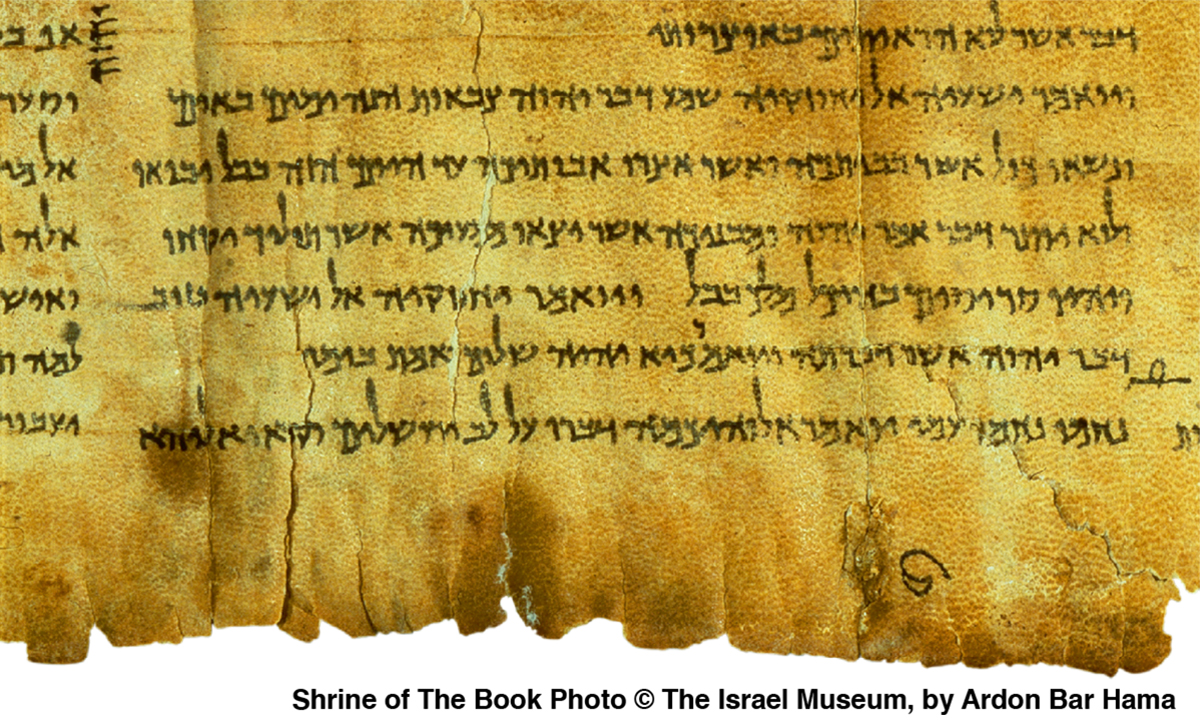 דבר אשר לא הראיתים באוצרותי
ויואמר ישעיה אל יחזקיה שמע דבר יהוה צבאות הנה ימים באים
ונשאו כול אשר בביתכה ואשר אצרו אבותיכה עד היום הזה בבל יבואו
ולוא יותר דבר אמר יהוה ומבניכה אשר יצאו ממעיכה אשר תוליד יקחו
והיו סריסים בהיכל מלך בבל ויואמר יחזקיה אל ישעיה טוב
דבר יהוה אשר דברתה ויואמר כיא יהיה שלום ואמת בימי
נחמו נחמו עמי יואמר אלוהיכמה דברו על לב ירושלים וקראו אליהא
Shrine of The Book Photo © The Israel Museum, by Ardon Bar Hama